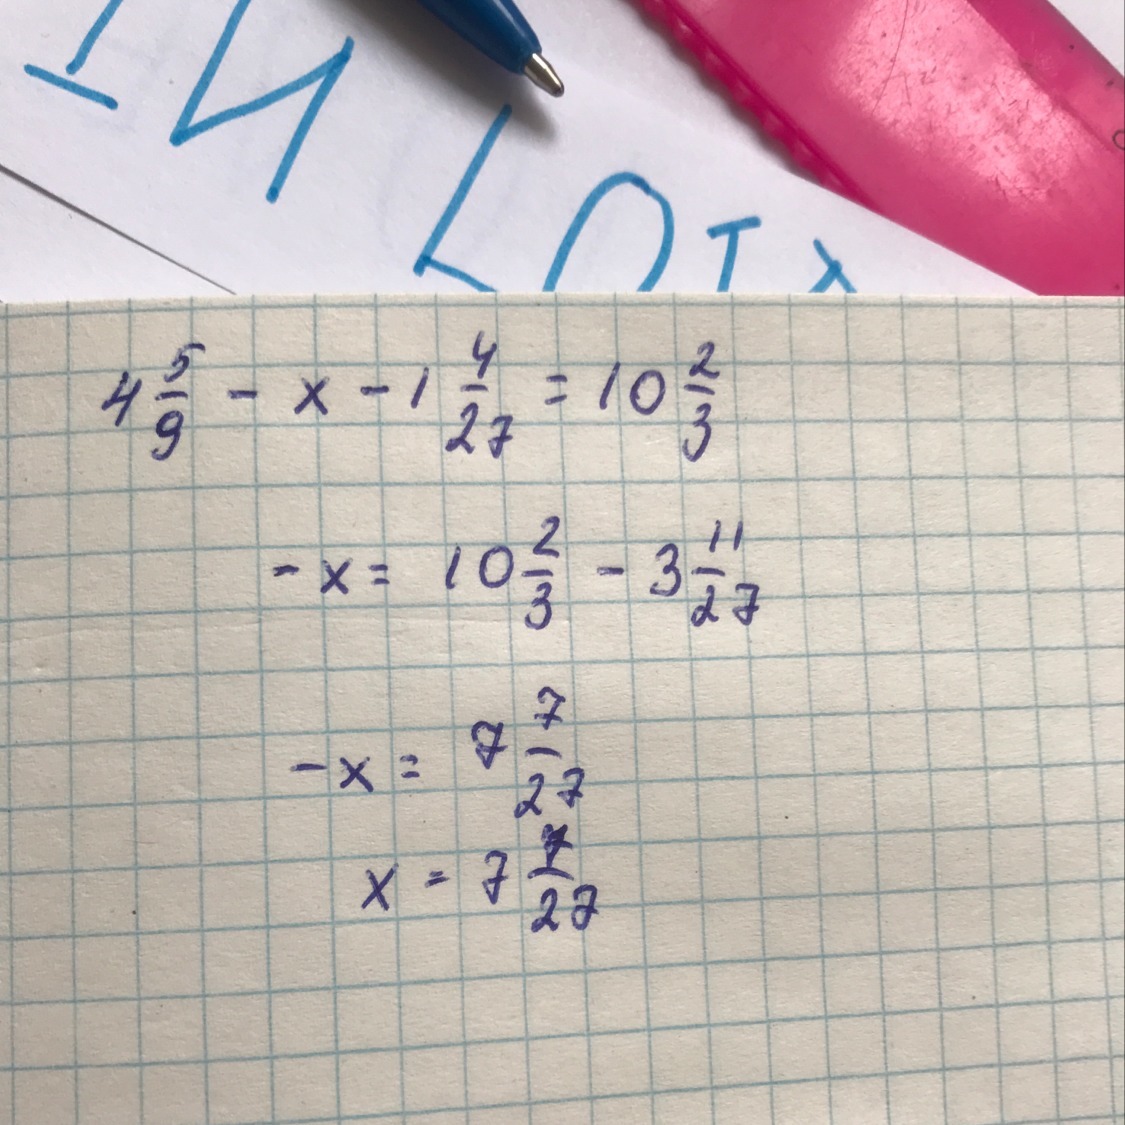 4 5/9 - x - 1 4/27 = 10 2/3
- x = 10 2/3 - 3 11/27
- x = 7 7/27
x = 7 7/27